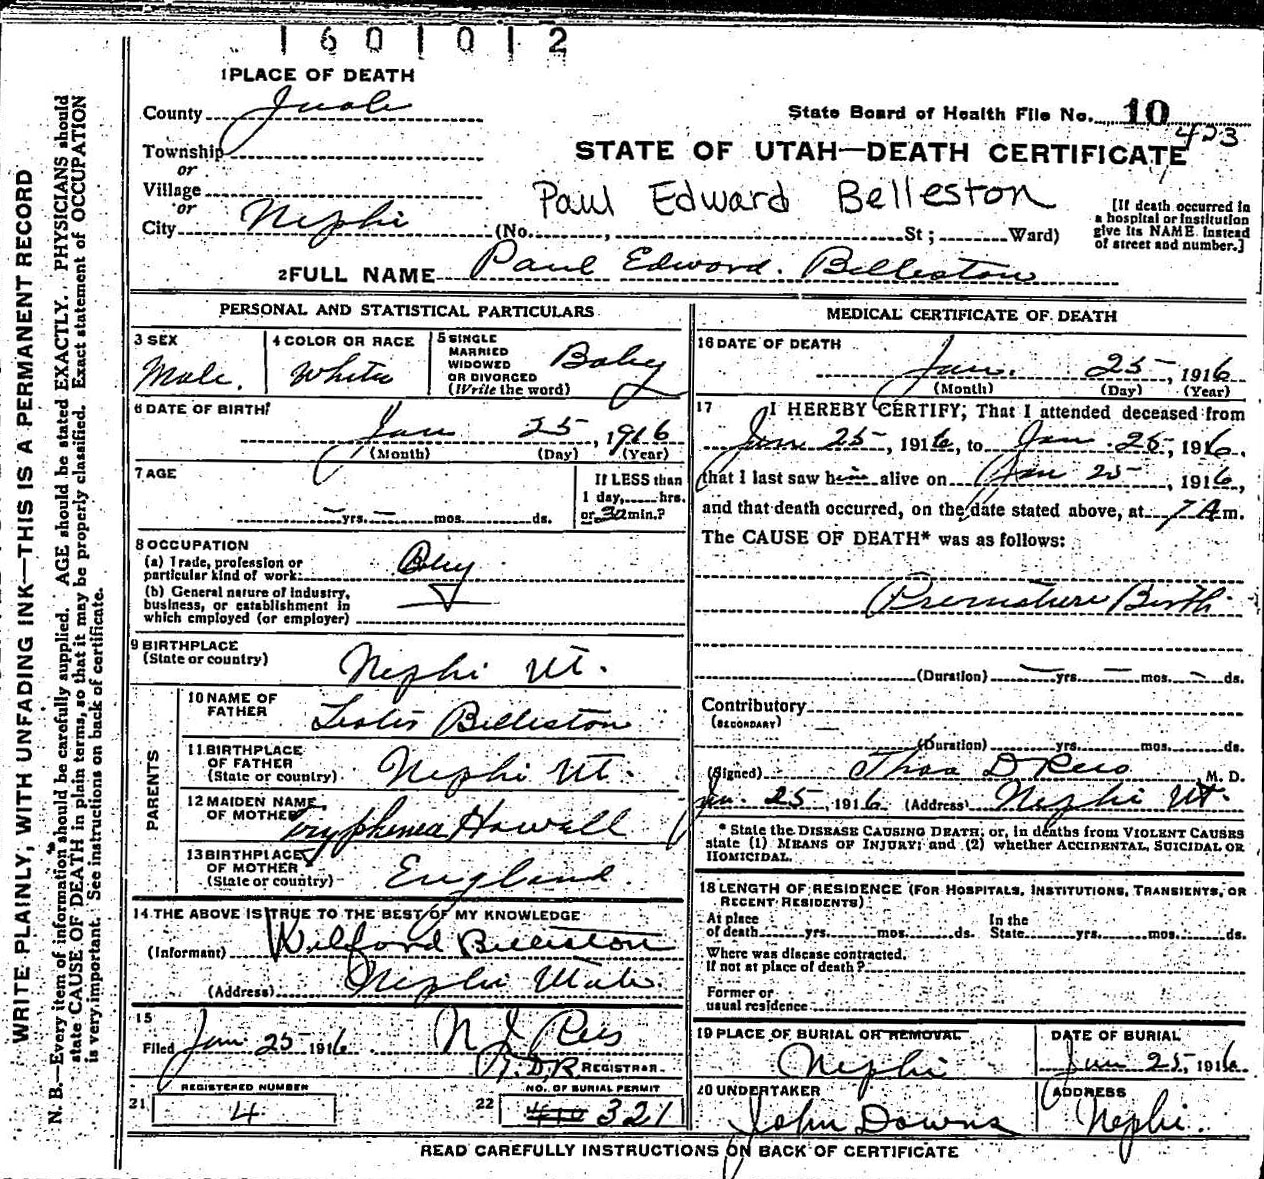 1601012
1 PLACE OF DEATH
County Juab
State Board of Health File No. 10
423
Township
or
Village
or
City Nephi (No. , St ; Ward)
STATE OF UTAH—DEATH CERTIFICATE
Paul Edward Belleston
[If death occurred in
a hospital or institution
give its NAME instead
of street and number.]
2 FULL NAME Paul Edward Belleston
PERSONAL AND STATISTICAL PARTICULARS
3 SEX
Male.
4 COLOR OR RACE
White
5 SINGLE
MARRIED
WIDOWED
OR DIVORCED
(Write the word)
Baby
6 DATE OF BIRTH
Jan 25, 1916
(Month) (Day) (Year)
7 AGE
yrs. mos. ds.
If LESS than
1 day, hrs.
or 30 min.?
8 OCCUPATION
(a) Trade, profession or
particular kind of work:
(b) General nature of industry,
business, or establishment in
which employed (or employer)
9 BIRTHPLACE
(State or country)
Nephi Ut.
PARENTS
10 NAME OF
FATHER
Lester Belleston
11 BIRTHPLACE
OF FATHER
(State or country)
Nephi Ut.
12 MAIDEN NAME
OF MOTHER
Tryphenia Howell
13 BIRTHPLACE
OF MOTHER
(State or country)
England
14 THE ABOVE IS TRUE TO THE BEST OF MY KNOWLEDGE
(Informant) Wilford Belleston
(Address) Nephi Utah.
15
Filed Jan 25 1916
N J Rees
R.D.R REGISTRAR.
REGISTERED NUMBER
21 4
NO. OF BURIAL PERMIT
22 410 321
MEDICAL CERTIFICATE OF DEATH
16 DATE OF DEATH
Jan. 25, 1916
(Month) (Day) (Year)
17 I HEREBY CERTIFY, That I attended deceased from
Jan 25, 1916, to Jan. 25, 1916,
that I last saw him alive on Jan 25, 1916,
and that death occurred, on the date stated above, at 7 A m.
The CAUSE OF DEATH* was as follows:
Premature Birth
(Duration) yrs. mos. ds.
Contributory
(SECONDARY)
(Duration) yrs. mos. ds.
(Signed) Thos D Rees, M. D.
Jan. 25, 1916 (Address) Nephi Ut.
* State the DISEASE CAUSING DEATH; or, in deaths from VIOLENT CAUSES
state (1) MEANS OF INJURY; and (2) whether ACCIDENTAL, SUICIDAL OR
HOMICIDAL.
18 LENGTH OF RESIDENCE (FOR HOSPITALS, INSTITUTIONS, TRANSIENTS, OR
RECENT RESIDENTS)
At place
of death yrs. mos. ds.
In the
State yrs. mos. ds.
Where was disease contracted,
If not at place of death?
Former or
usual residence
19 PLACE OF BURIAL OR REMOVAL
Nephi
DATE OF BURIAL
Jan 25, 1916
20 UNDERTAKER
John Downs
ADDRESS
Nephi.
READ CAREFULLY INSTRUCTIONS ON BACK OF CERTIFICATE
WRITE PLAINLY, WITH UNFADING INK—THIS IS A PERMANENT RECORD
N. B.—Every item of information should be carefully supplied. AGE should be stated EXACTLY. PHYSICIANS should
state CAUSE OF DEATH in plain terms, so that it may be properly classified. Exact statement of OCCUPATION
is very important. See instructions on back of certificate.